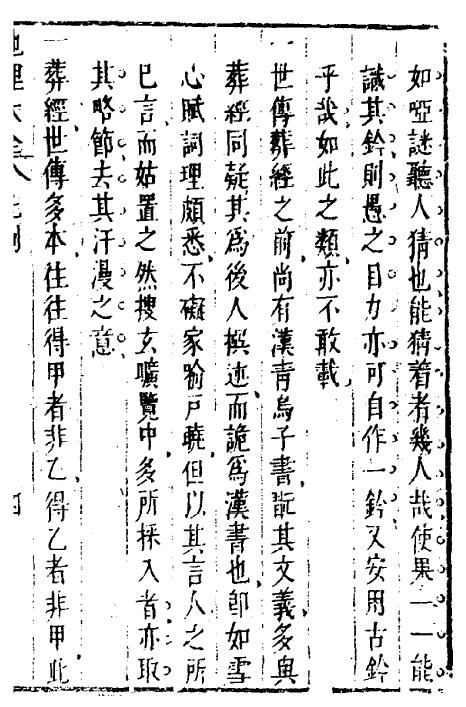 如啞謎聽人猜也能猜着者幾人哉使果一一能
識其鈐則愚之目力亦可自作一鈐又安用古鈐
乎哉如此之類亦不敢載
一世傳葬經之前尚有漢青烏子書詆其文義多與
葬經同疑其爲後人撰述而詭爲漢書也卽如雪
心賦詞理頗悉不礙家喻戸曉但以其言人之所
巳言而姑置之然搜玄曠覽中多所採入者亦取
其略節去其汗漫之意
一葬經世傳多本往往得甲者非乙得乙者非甲此
地理大全 凡例 四